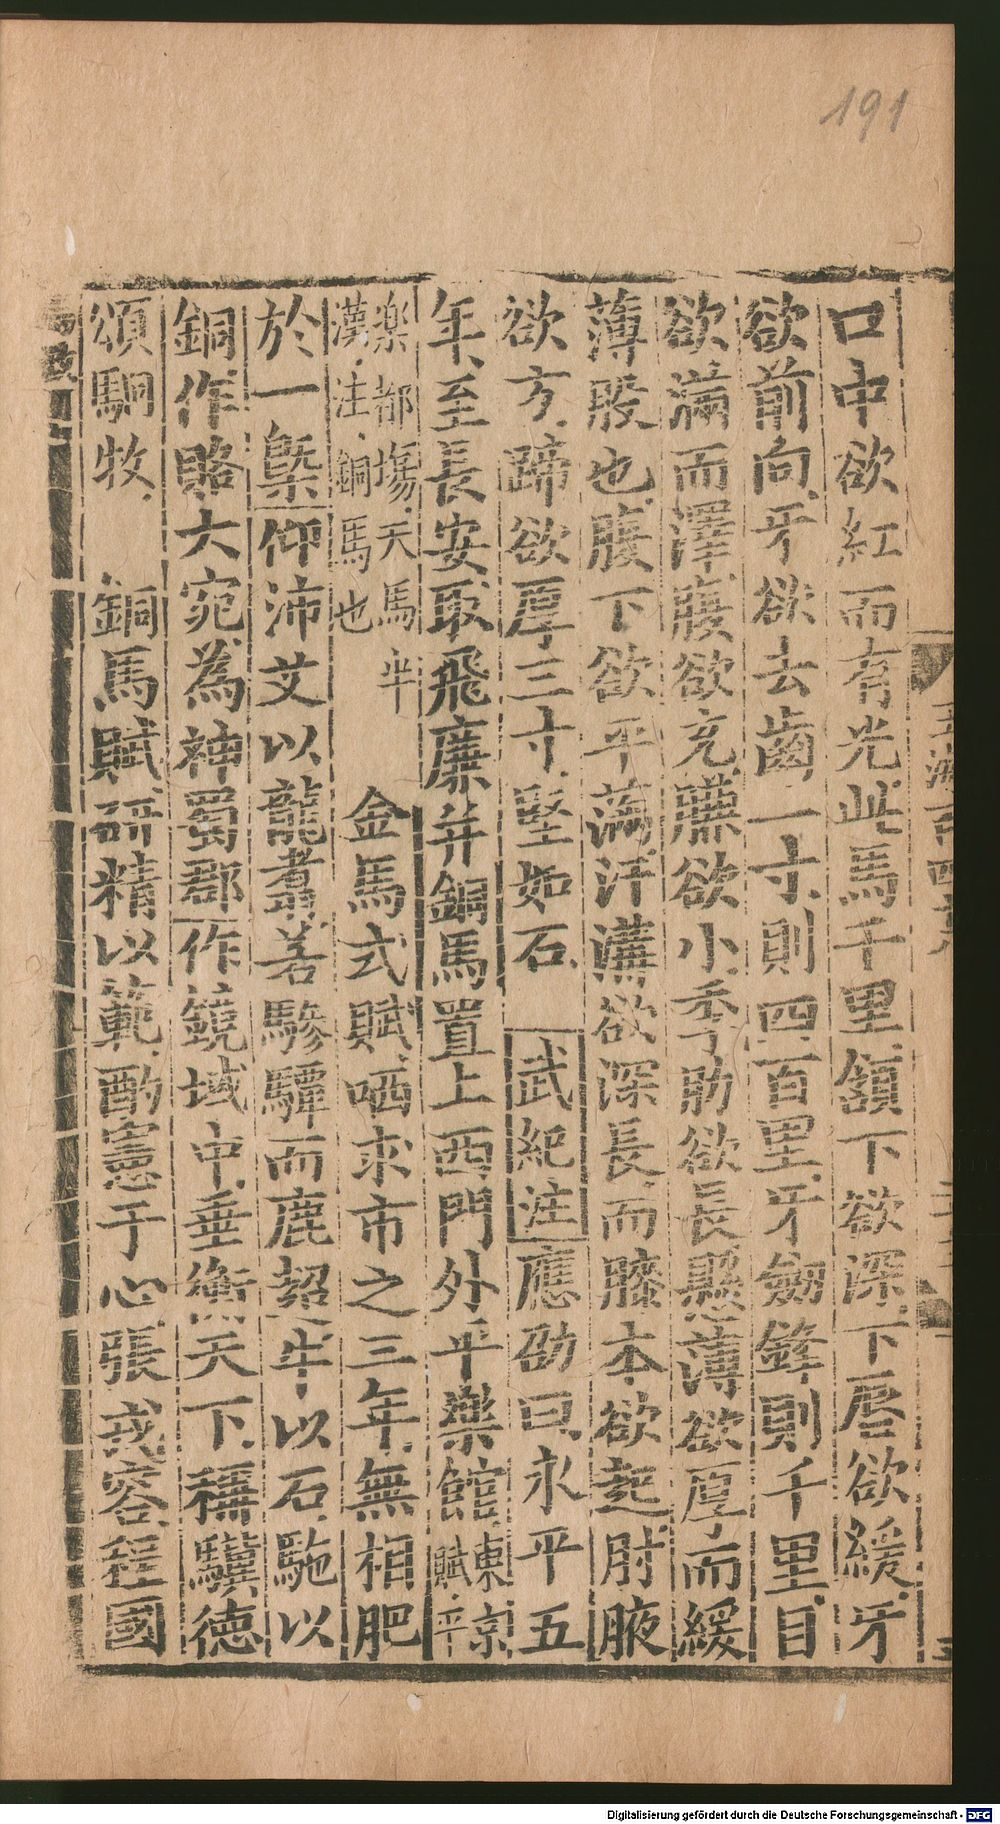 191
口中欲紅而有光此馬千里頷下欲深下唇欲緩牙
欲前向牙欲去齒一寸則四百里牙劒鋒則千里目
欲滿而澤腹欲充膁欲小季肋欲長懸薄欲厚而緩
薄股也腹下欲平滿汗溝欲深長而膝本欲起肘腋
欲方蹄欲厚三寸堅如石 武紀注應劭曰永平五
年至長安取飛廉并銅馬置上西門外平樂館東京賦平
樂都塲天馬半漢注銅馬也 金馬式賦哂求市之三年無相肥
於一槩仰沛艾以龍翥若驂驔而鹿超牛以石䭾以
銅作賂大宛為神蜀郡作鏡域中垂衡天下稱驥德
頌駉牧 銅馬賦研精以範酌憲于心張戎容程國
Digitalisierung gefördert durch die Deutsche Forschungsgemeinschaft - DFG